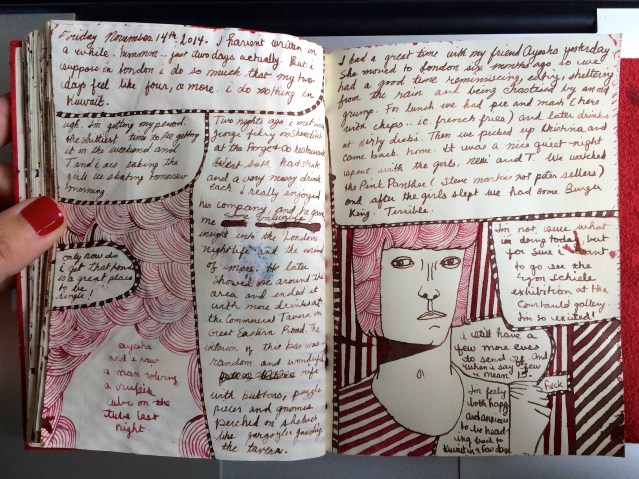 Friday November 14th. 2014. I havent written in
a while. hmmm.. just two days actually. But i
suppose in London i do so much that my two
days feel like four, or more. i do nothing in
Kuwait.
ugh. I'm getting my period.
The shittiest time to be getting
it is the weekend and
T and i are taking the
girls ice skating tomorrow
morning
only now do
i get that
is a great place
to be
single!
ayesha
and i saw
a man solving
a rubix
cube on the
tube last
night.
Two nights ago i met with
George
at the Forge & Co restaurant
We both had steak
and a very messy drink
each. I really enjoyed
his company and he gave
me
insight into the London
nightlife and the mind
of men. He later
showed me around the
area and ended it
with more drinks at
the Commercial Tavern on
Great Eastern Road. The
interior of this bar was
random and wonderful
rife
with buttons, puzzle
pieces and gnomes
perched on shelves
like gargoyles guarding
the tavern.
I had a great time with my friend Ayesha yesterday.
She moved to London six months ago so we
had a good time reminiscing, eating, sheltering
from the rain and being chastised by an old
grump. For lunch we had pie and mash (hers
with chips.. i.e. french fries) and later drinks
at dirty dicks. Then we picked up Krishna and
came back home. It was a nice quiet night
spent with the girls, and T. We watched
the Pink Panther (Steve Martin not peter sellers)
and after the girls slept we had some Burger
King. Terrible.
Im not sure what
im doing today but
for sure i want
to go see the
Egon Schiele
exhibition at the
Courtauld gallery.
Im so excited!
i still have a
few more eves
to send off. And
when i say 'few'
i mean
Fuck
Im feeling
both happy
and anxious
to be head-
ing back to
Kuwait in a few days